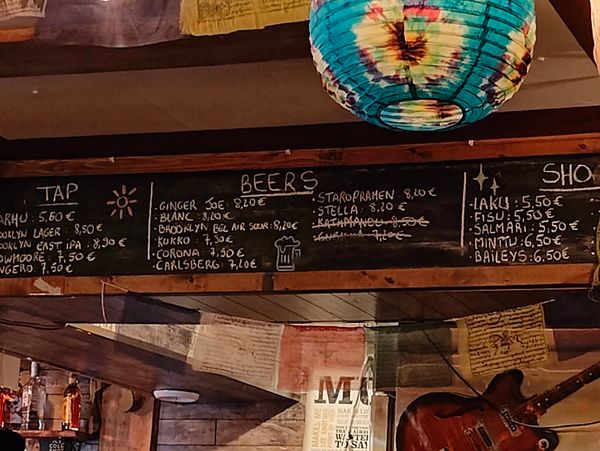 TAP
ARHU : 5,60 €
OOKLYN LAGER : 8,50 €
OOKLYN EAST IPA : 8,90 €
OWMOORE : 7,50 €
NGERO : 7,50 €
BEERS
• GINGER JOE : 8,20 €
• BLANC : 8,20 €
• BROOKLYN BEL AIR SOUR : 8,20 €
• KUKKO : 7,50 €
• CORONA : 7,50 €
• CARLSBERG : 7,20 €
• STAROPRAMEN : 8,20 €
• STELLA : 8,20 €
• KATHMANDU : 8,50 €
7,20 €
SHO
• LAKU : 5,50 €
• FISU : 5,50 €
• SALMARI : 5,50 €
• MINTTU : 6,50 €
• BAILEYS : 6,50 €
M
MAKES ME
WANTED
TO SAY